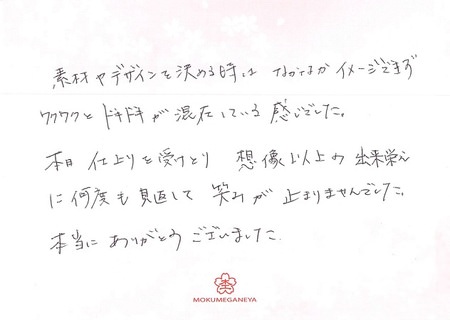 素材やデザインを決める時は なかなか イメージできず
ワクワクと ドキドキが 混在している 感じでした。
本日 仕上りを受けとり 想像以上の 出来栄え
に 何度も 見返して 笑みが 止まりませんでした。
本当に ありがとう ございました。
MOKUMEGANEYA